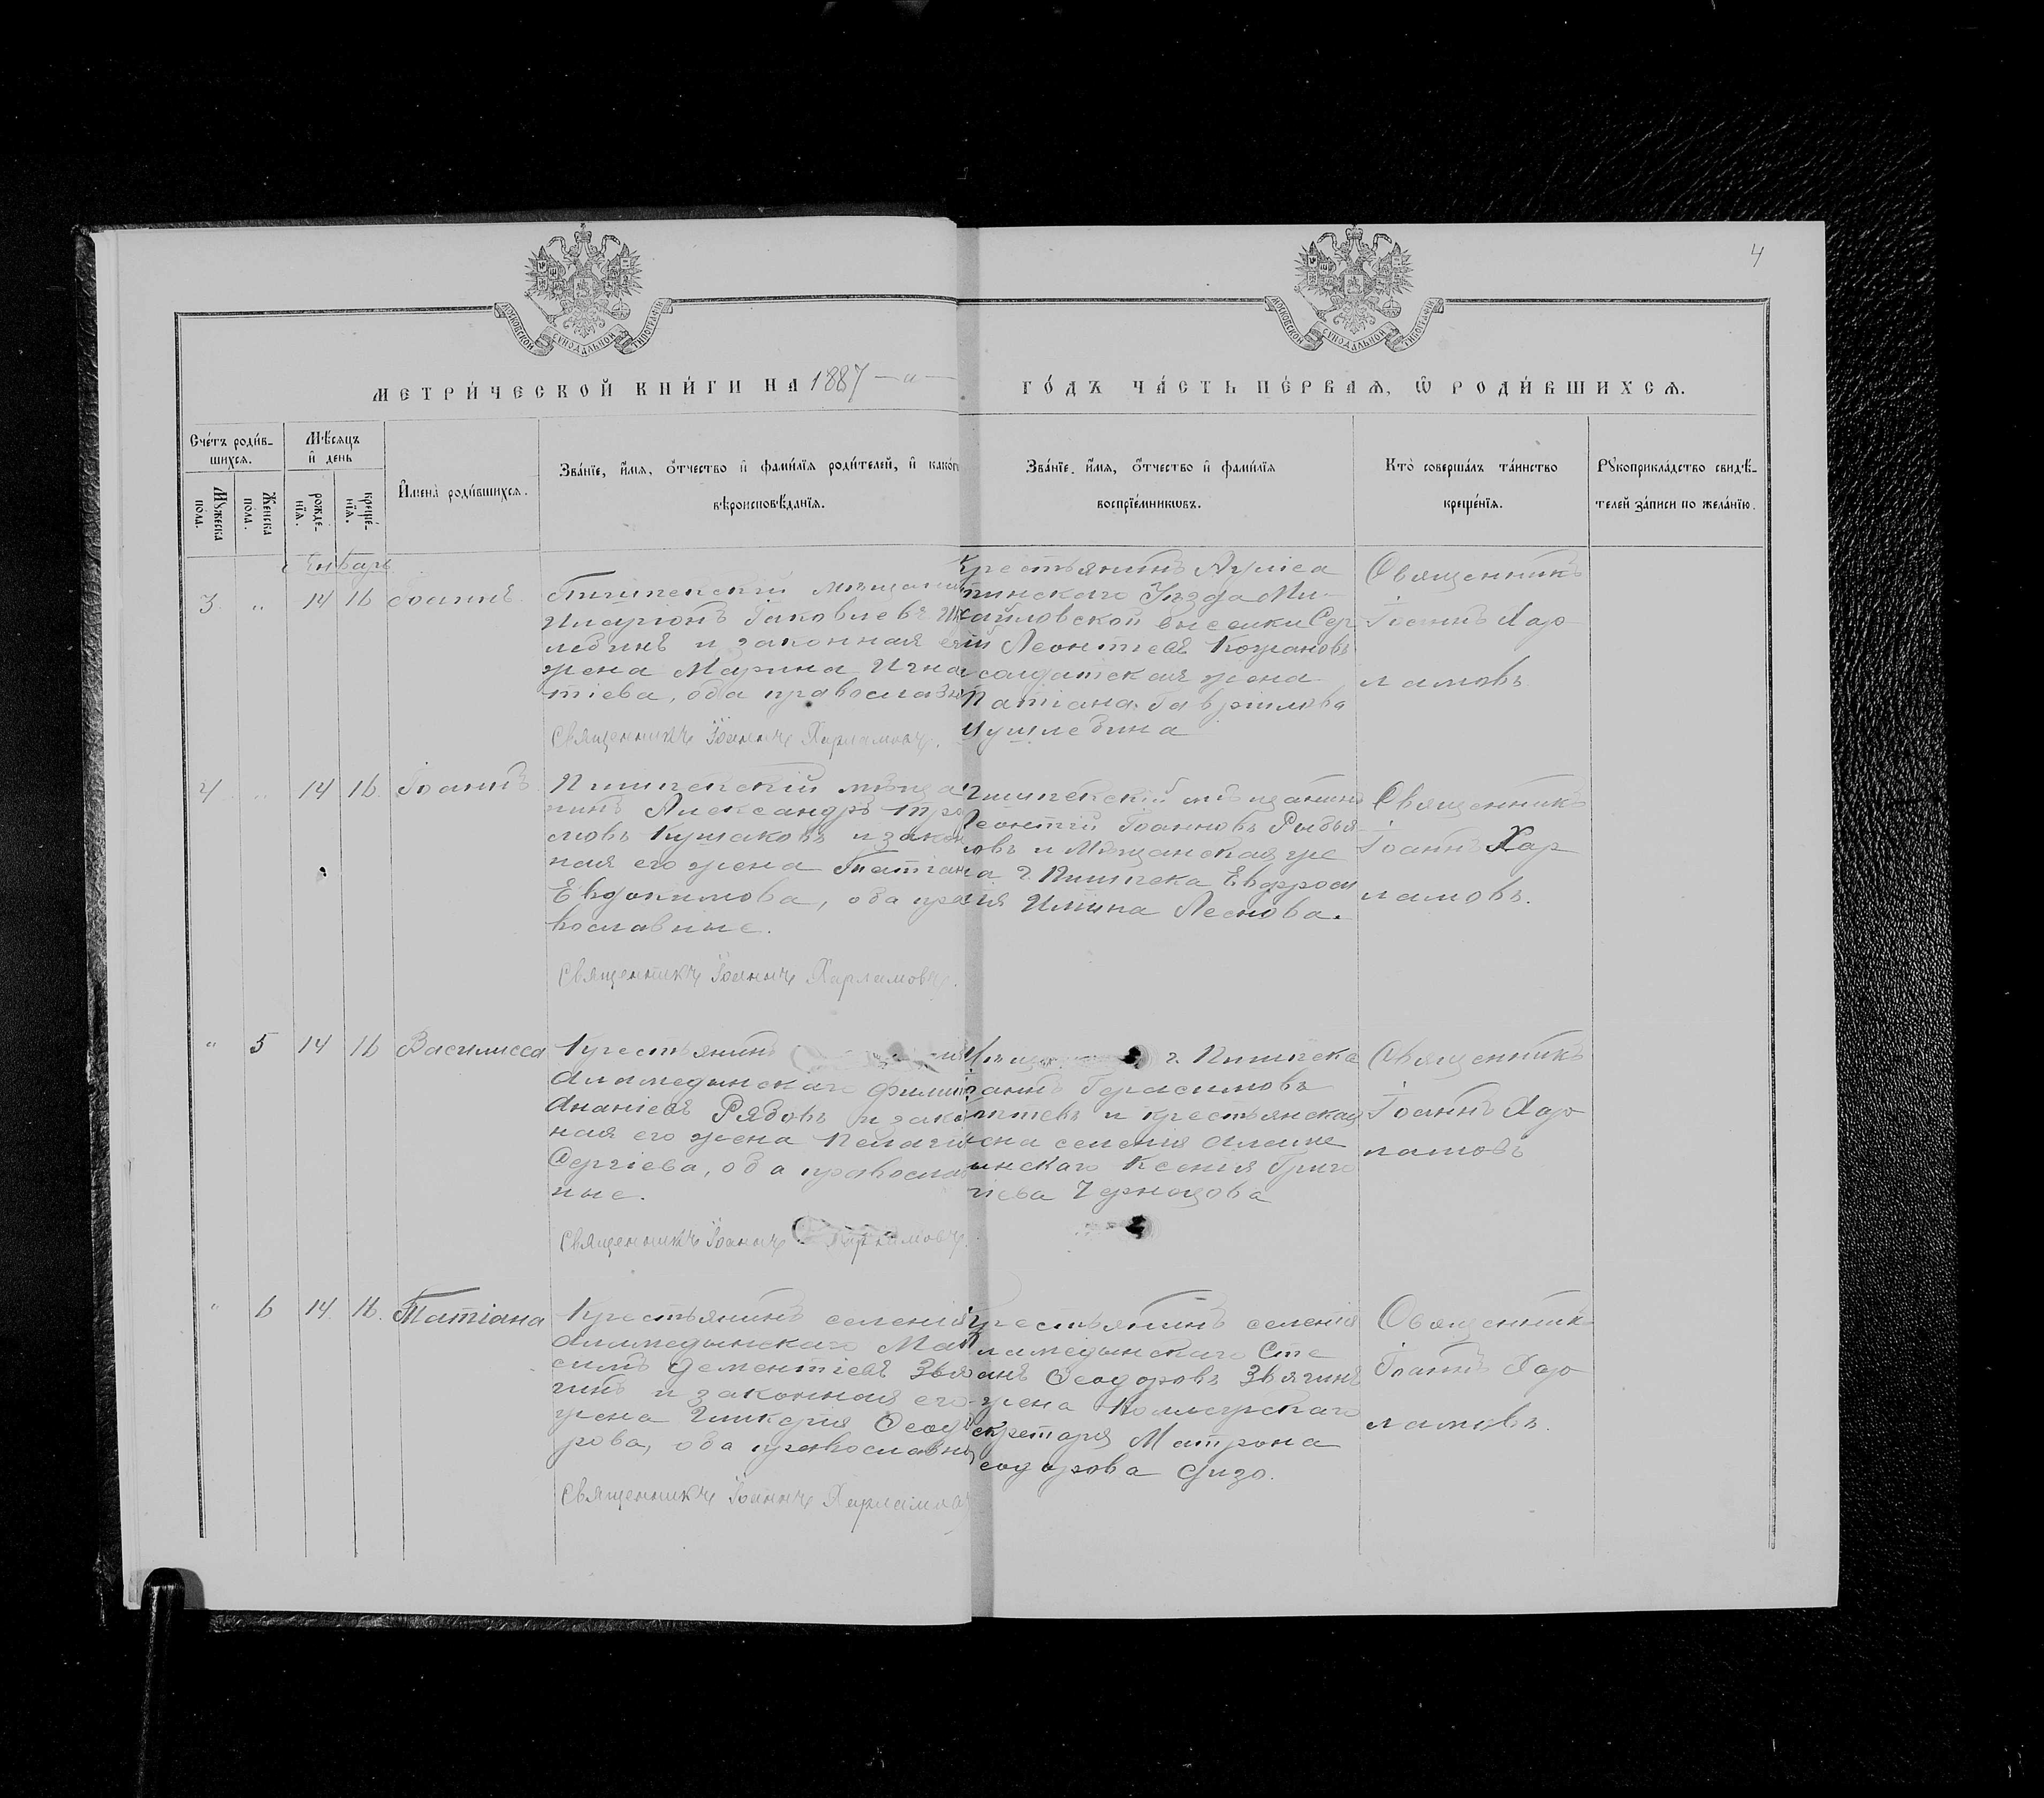 4
МОСКОВСКОЙ СѴНОДАЛЬНОЙ ТИПОГРАФІИ
МОСКОВСКОЙ СѴНОДАЛЬНОЙ ТИПОГРАФІИ
МЕТРИ́ЧЕСКОЙ КНИ́ГИ НА 1887 —а—
ГО́ДЪ ЧА́СТЬ ПЕ́РВАѦ, Ѽ РОДИ́ВШИХСѦ.
Сче́тъ роди́в-
шихсѧ.
Мꙋжеска
пола.
Женска
пола.
Мѣ́сѧцъ
и҆ день
рожде-
нїѧ.
креще́-
нїѧ.
И҆мена̀ роди́вшихсѧ.
Зва́нїе, и҆́мѧ, ѻ҆́тчество и҆ фами́лїѧ роди́телей, и҆ како́гѡ
вѣроисповѣ́данїѧ.
Зва́нїе, и҆́мѧ, ѻ҆́тчество и҆ фами́лїѧ
воспрїе́мникѡвъ.
Кто̀ соверша́лъ та́инство
креще́нїѧ.
Рꙋкоприкла́дство свидѣ́-
телей за́писи по жела́нїю.
Январь
3 " 14 16 Іоаннъ
Пишпекскій мѣщани
Иларіонъ Іаковлевъ
и законная ея
жена Марина Игна
тіева, оба православн
Священникъ Іоаннъ Харламовъ.
Крестьянинъ Ауліеа
тинскаго Уѣзда Ми-
хайловской высѣлки Сер
ій Леонтіевъ
солдатская жена
Татіана Гаврилова
Священникъ
Іоаннъ Хар
ламовъ
4 " 14 16 Іоаннъ
Пишпекскій мѣща
нинъ Александръ Тро
мовъ Кушаковъ и закон
ная его жена Татіан
Евдокимова, оба пра
вославные.
Священникъ Іоаннъ Харламовъ.
Пишпекскій мѣщанинъ
Леонтій Іоанновъ
овъ и Мѣщанская же
а г. Пишпека Евфроси
ія Ильина Леснова.
Священникъ
Іоаннъ Хар
ламовъ.
" 5 14 16 Василисса
Крестьянинъ
Аламединскаго Филип
Ананіевъ Рябовъ и зако
ная его жена Пелагія
Сергіева, оба православ
ные.
Священникъ Іоаннъ Харламовъ.
г. Пишпека
оаннъ Герасимовъ
и крестьянская
ена селенія Аламе
инскаго Ксенія Григо
ріева
Священникъ
Іоаннъ Хар
ламовъ
" 6 14 16 Татіана
Крестьянинъ селенія
Аламединскаго Мак
симъ Дементіевъ Звя
гинъ и законная его
жена Гликерія Ѳеодо
рова, оба православны
Священникъ Іоаннъ Харламовъ
Крестьянинъ селенія
ламединскаго Сте
анъ Ѳеодоровъ Звягинъ
жена Коллежскаго
екретаря Матрона
еодорова
Священникъ
Іоаннъ Хар
ламовъ.